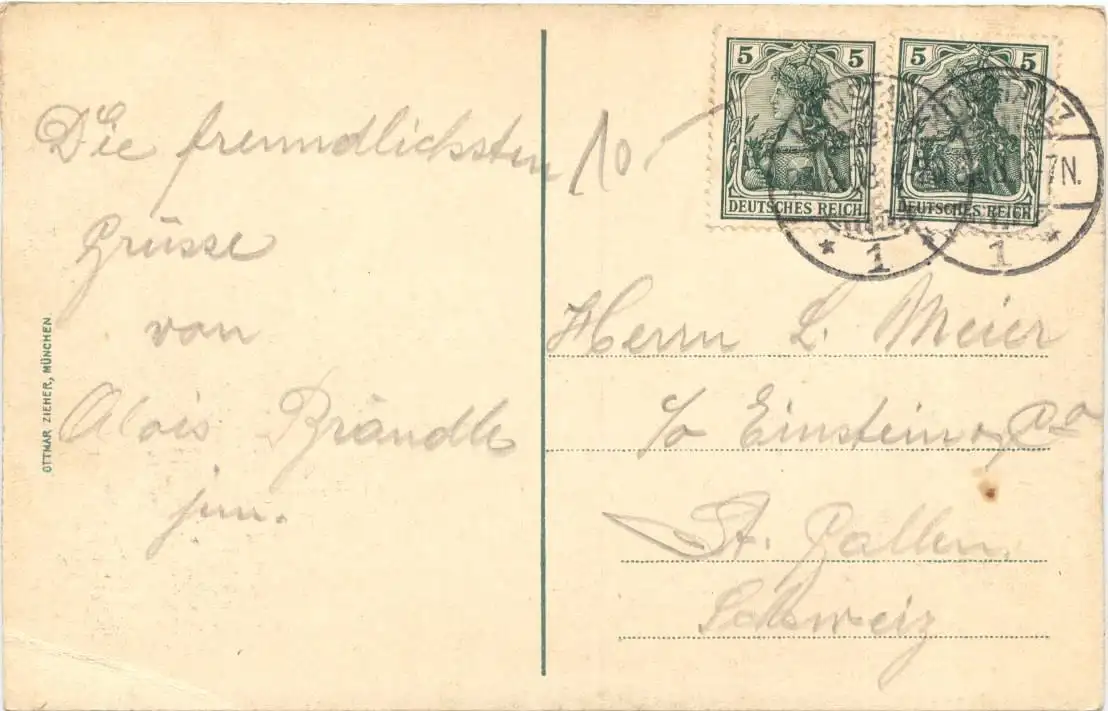 Die freundlichsten
Grüsse
von
Alois Brändle
jun.
OTTMAR ZIEHER, MÜNCHEN
10
5 5
DEUTSCHES REICH
5 5
DEUTSCHES REICH
7N.
1
1
Herrn L. Meier
c/o Einstein & Co
St. Gallen
Schweiz